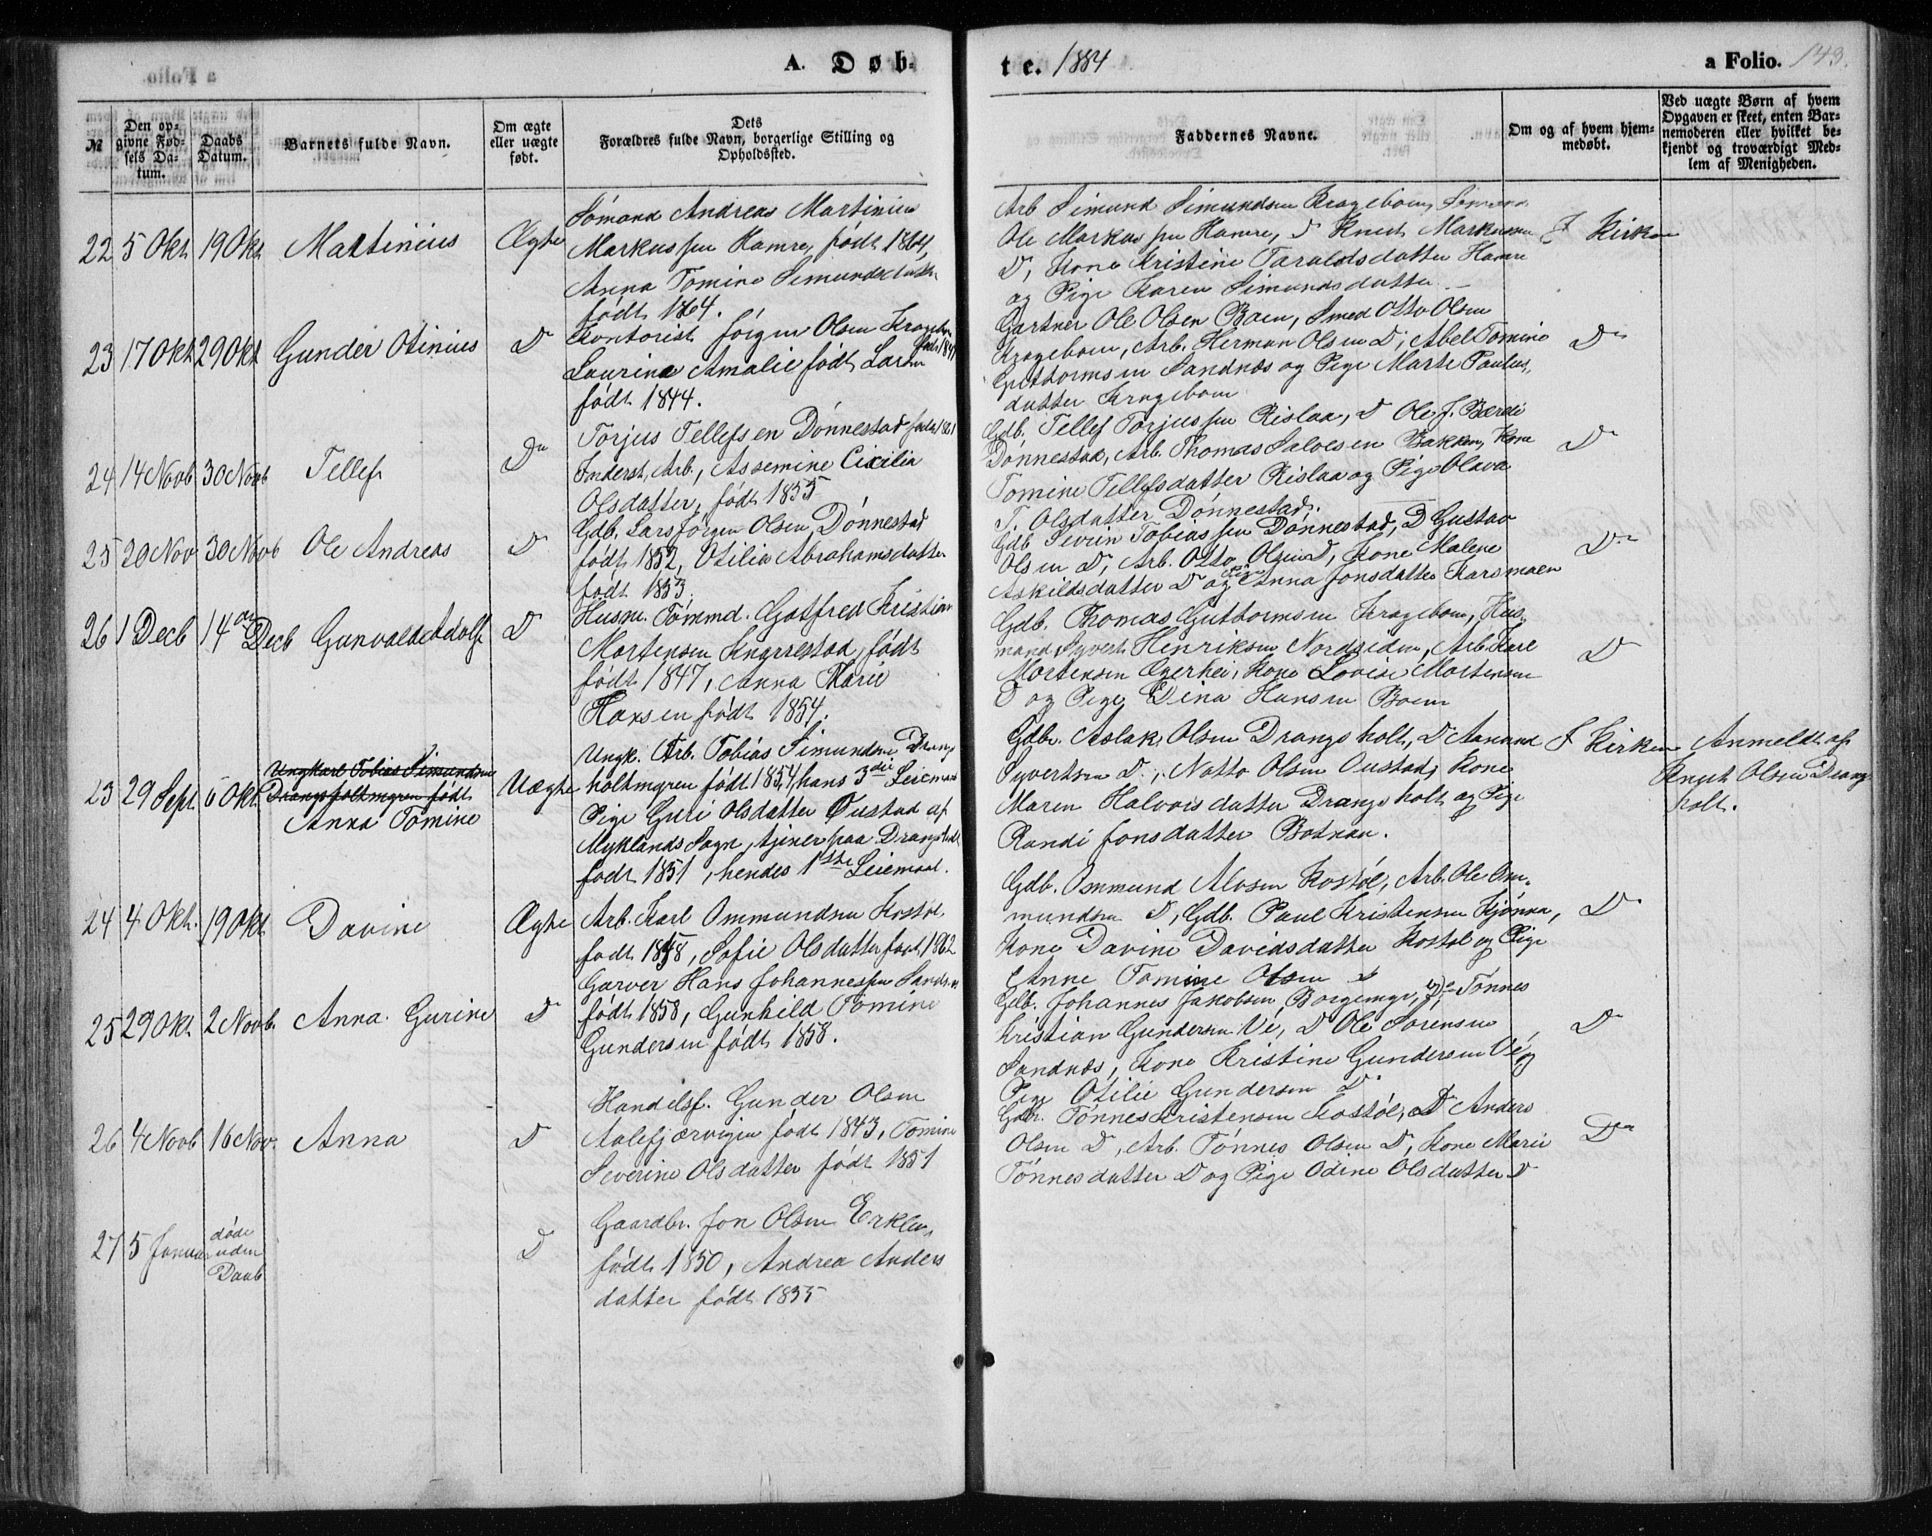 A. Døb-
te. 1884
a Folio. 143.
№
Den op-
givne Fød-
sels Da-
tum.
Daabs
Datum.
Barnets fulde Navn.
Om ægte
eller uægte
født.
Dets
Forældres fulde Navn, borgerlige Stilling og
Opholdssted.
Faddernes Navne.
Om og af hvem hjem-
medøbt.
Ved uægte Børn af hvem
Opgaven er skeet, enten Bar-
nemoderen eller hvilket be-
kjendt og troværdigt Med-
lem af Menigheden.
22 5 Okt 19 Okt Martinius Ægte
Sömand Andreas Martinius
Markussen Hamre, født 1864,
Anna Tomine Simundsdatter
født 1864.
Arb. Simund Simundsen Kragebom, Sömand
Ole Markussen Hamre, D Knut Markussen
D, Kone Kristine Taraldsdatter Hamre
og Pige Karen Simundsdatter
I Kirken
23 17 Okt 29 Okt Gunder Otinius D
Kontorist Jörgen Olsen Kragebom
født 1841
Laurine Amalie født Larsen
født 1844.
Gartner Ole Olsen Boen, Smed Otto Olsen
Krageboen, Arb. Herman Olsen D, Abel Tomine
Guttormsen Sandnæs og Pige Marte Paulus,
datter Krageboen
Do
24 14 Novb 30 Novb Tellef Do
Torjus Tellefsen Dönnestad født 1861
Inderst, Arb., Assemine Cicilia
Olsdatter, født 1855
Gdb. Tellef Torjussen Rislaa, D Ole J.
Dönnestad, Arb. Thomas Salvesen Bakken, Kone
Tomine Tellefsdatter Rislaa og Pige Olava
T. Olsdatter Dönnestad.
D
25 20 Nov 30 Novb Ole Andreas D
Gdb. Lars Jörgen Olsen Dönnestad
født 1852, Otilia Abrahamsdatter
født 1853.
Gdb Severin Tobiassen Dönnestad, D Gustav
Olsen D, Arb. Otto Olsen D, Kone Malene
Askildsdatter D og Pige Anna Jonsdatter Karsmoen
Do
26 1 Decb 14 Decb Gunvald Adolf D
Husm. Tömmd. Gotfred Kristian
Mortensen Knarrestad, født
født 1847, Anna Marie
Hansen født 1854.
Gdb. Thomas Guttormsen Kragebom, Hus-
mand Syvert Henriksen Nordsiden, Arb. Karl
Mortensen Ægerhei, Kone Lovise Mortensen
D og Pige Dina Hansen Boen
D
23 29 Sept. 6 Okt.
Ungkarl Tobias Simundsen
Drangsholtmyren født
Anna Tomine Uægte
Ungk. Arb. Tobias Simundsen Drangs
holtmyren født 1854, hans 3die Leiemaal
Pige Guri Olsdatter Oustad af
Myklands Sogn, tjener paa Drangsholt
født 1851, hendes 1ste Leiemaal.
Gdbr. Aslak Olsen Drangsholt, D Aanund
Syvertsen D, Natto Olsen Oustad, Kone
Maren Halvorsdatter Drangsholt og Pige
Randi Jonsdatter Botnan.
I Kirken
Anmeldt af
Knut Olsen Drangs
holt.
24 4 Okt. 19 Okt. Davine Ægte
Arb. Karl Ommundsen Kostöl
født 1858, Sofie Olsdatter født 1862
Gdb. Ommund Alvsen Kostöl, Arb. Ole Om-
mundsen D, Gdb. Paul Kristensen Kjönna,
Kone Davine Davidsdatter Kostöl og Pige
Anne Tomine Olsen D
D
25 29 Okt 2 Novb. Anna Gurine D
Garver Hans Johannessen Sandnæs
født 1858, Gunhild Tomine
Gundersen født 1858.
Gdb. Johannes Jakobsen Borgemyr, Tönnes
Kristian Gundersen Vé, D Ole Sörensen
Sandnæs, Kone Kristine Gundersen Vé og
Pige Otilie Gundersen D
Do
26 4 Novb 16 Nov. Anna D
Handelsf. Gunder Olsen
Aalefjærvigen født 1843, Tomine
Severine Olsdatter født 1851
Gdbr. Tönnes Kristensen Kostöl, D Anders
Olsen D, Arb. Tönnes Olsen D, Kone Marie
Tönnesdatter D og Pige Odine Olsdatter D
Do
27 5 Januar døde
uden
Daab
D
Gaardbr. Jon Olsen Erkleiv,
født 1850, Andrea Anders
datter født 1855